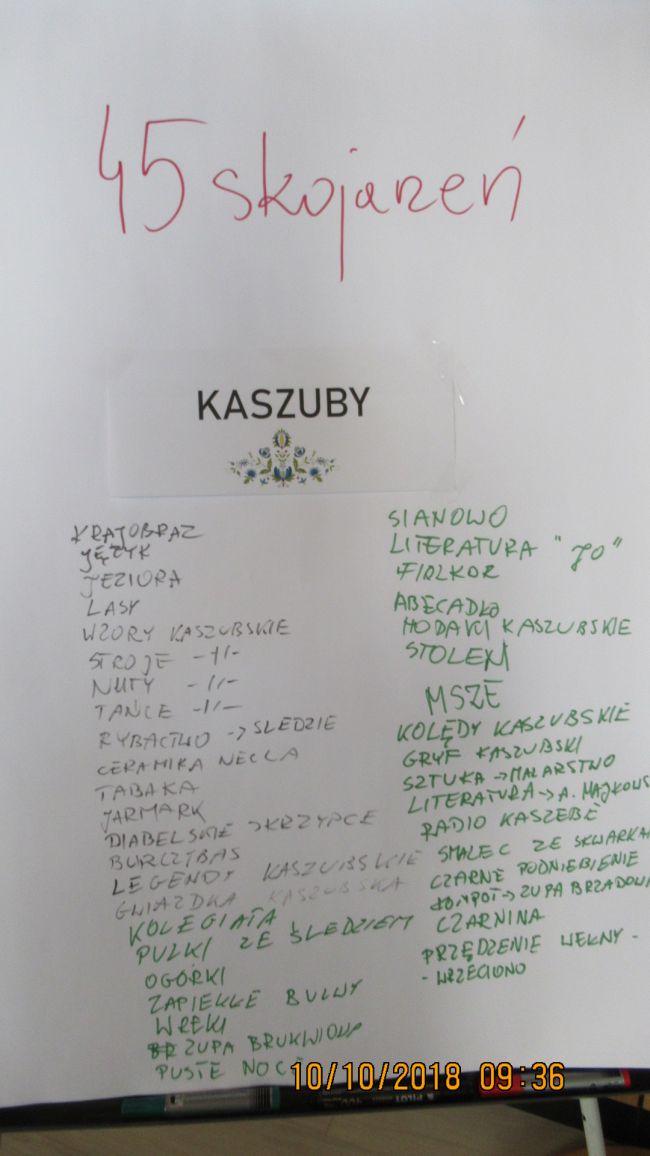 45 skojarzeń
KASZUBY
KRAJOBRAZ
JĘZYK
JEZIORA
LASY
WZORY KASZUBSKIE
STROJE -//-
NUTY -//-
TAŃCE -//-
RYBACTWO -> SLEDZIE
CERAMIKA NECLA
TABAKA
JARMARK
DIABELSKIE SKRZYPCE
BURCZYBAS
LEGENDY KASZUBSKIE
GWIAZDKA KASZUBSKA
KOLEGIATA
PULKI ZE ŚLEDZIEM
OGÓRKI
ZAPIEKŁE BULWY
WREKI
ZUPA BRUKWIOWA
PUSTE NOCE
SIANOWO
LITERATURA "JO"
FIOLKOR
ABECADŁO
HODAVCI KASZUBSKIE
STOLEM
MSZE
KOLĘDY KASZUBSKIE
GRYF KASZUBSKI
SZTUKA -> MALARSTWO
LITERATURA -> A. MAJKOWS
RADIO KASZEBË
SMALEC ZE SKWARKA
CZARNE PODNIEBIENIE
KOMPOT -> ZUPA BRZADOWA
CZARNINA
PRZĘDZENIE WEŁNY -
- WRZECIONO
PILOT
10/10/2018 09:36